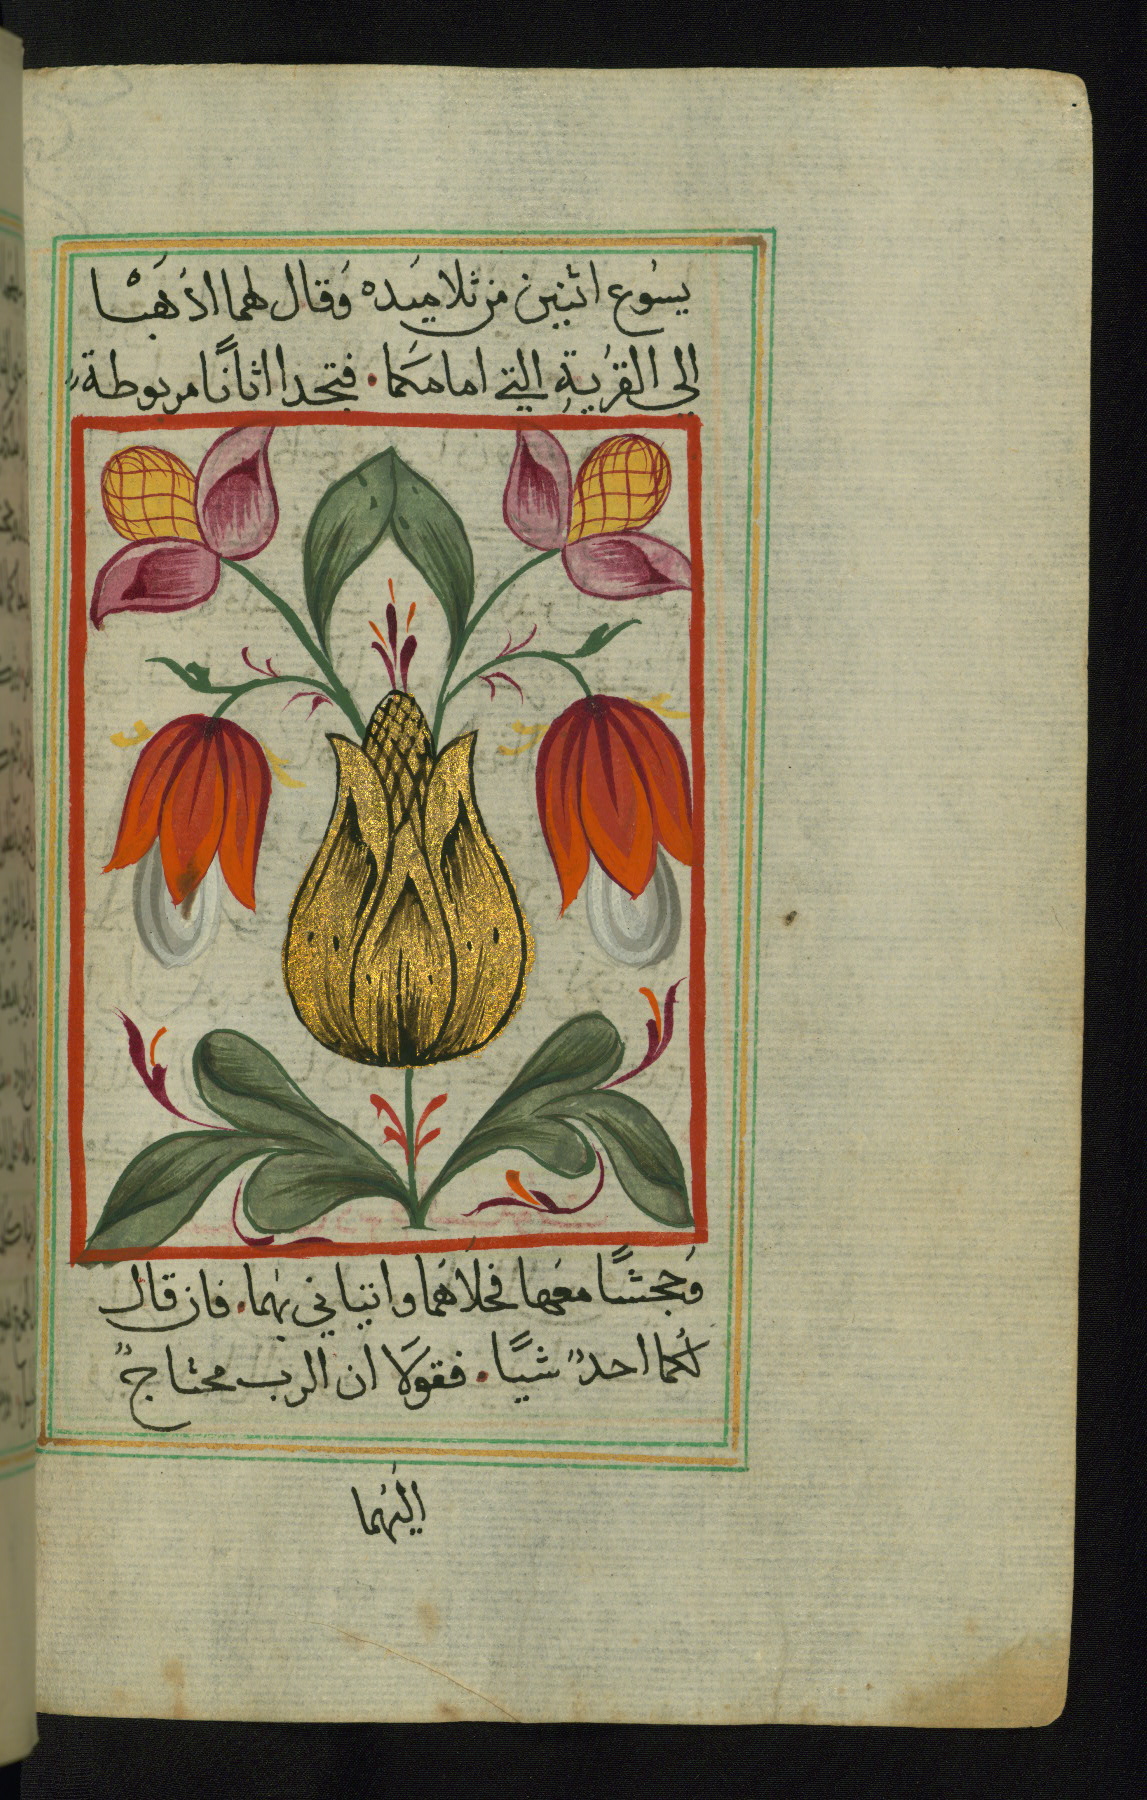 يسُوع اثنين من تلاميَده وَقال لهما اذهَبْا
الي القرُيةِ التي امامكَما. فتجدا اتانًا مربوطة
وَجحشًا معَها فحلاهَما واتياني بهما. فان قال
لكُما احدٌ شيًا. فقولاَ ان الرب محتاجٌ
اليهُما